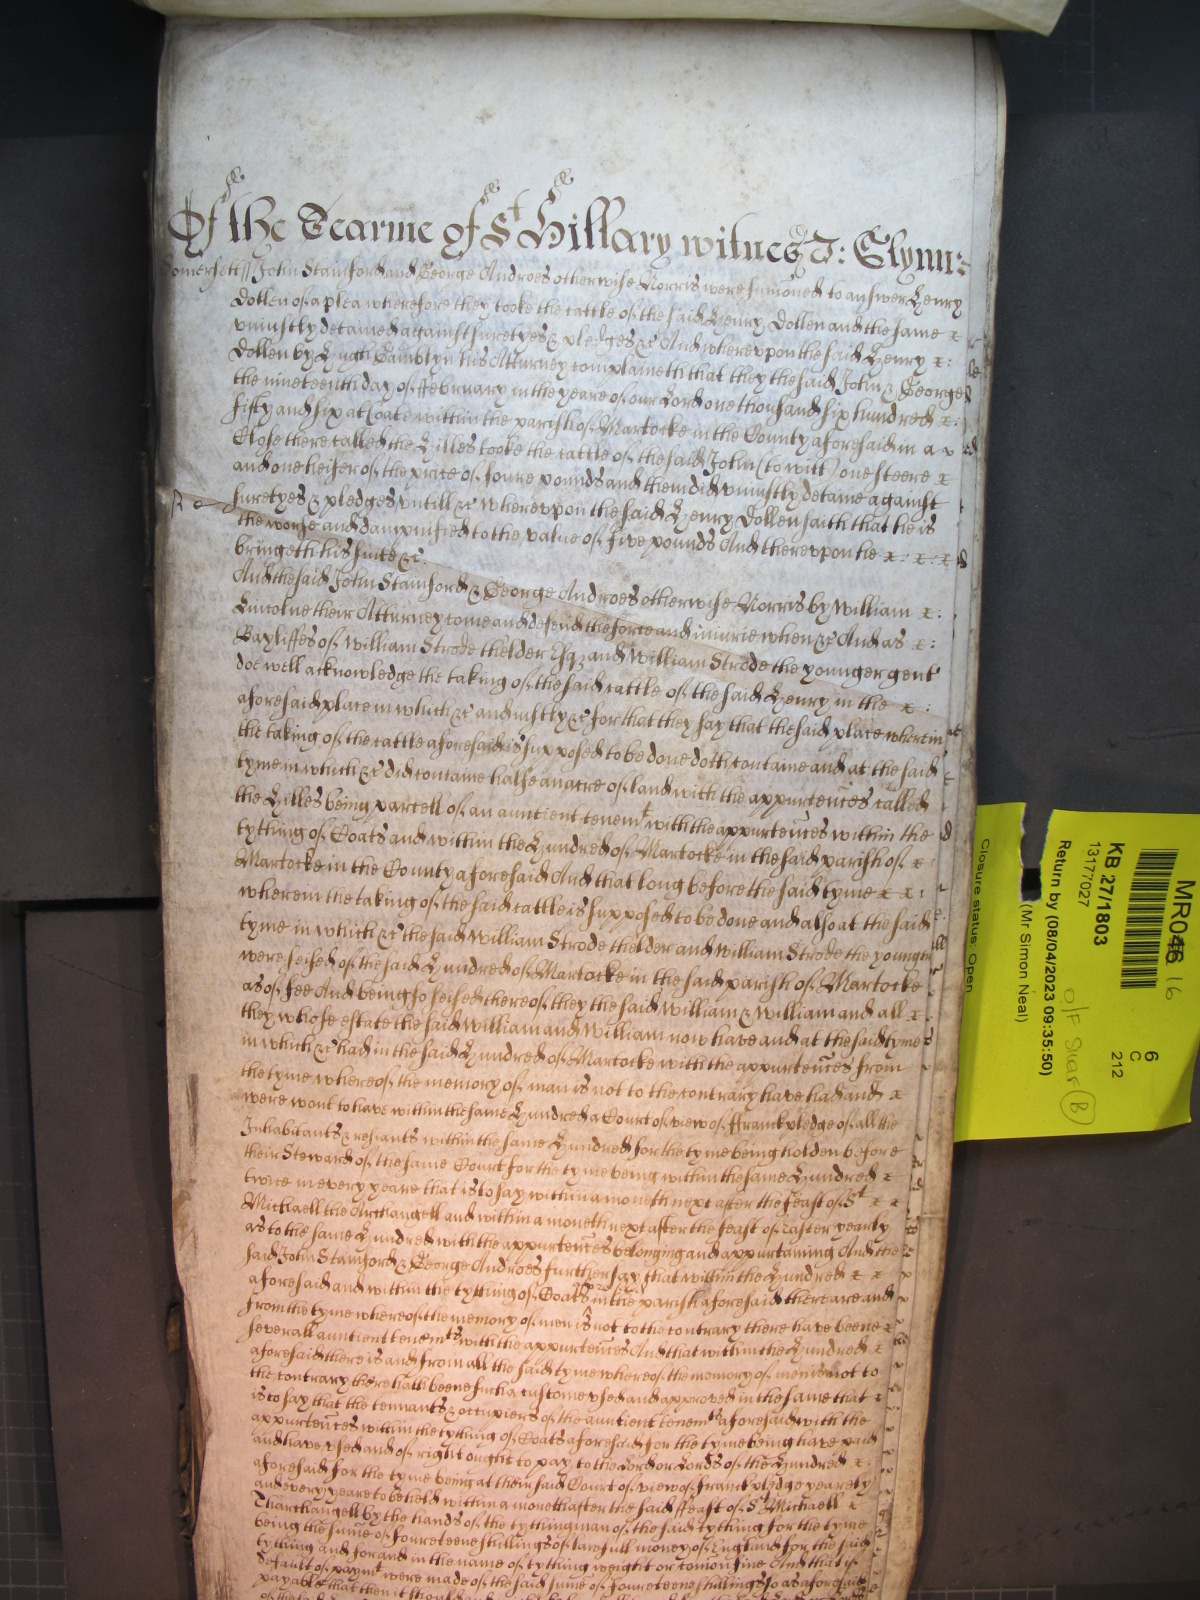 Of the Tearme of St Hillary witnes J: Glynn:
Somersett ss John Stamford and George Androes otherwise Norris were sumoned to answer Henry
Dollen of a plea wherefore they tooke the cattle of the said Henry Dollen and the same
uniustly detained against suretyes & pledges &c And whereupon the said Henry
Dollen by Hugh Gamblyn his Atturney complaineth that they the said John & George
the nineteenth day of ffebruary in the yeare of our Lord one thousand six hundred
fifty and six at Coate within the parish of Martocke in the County aforesaid in a
Close there called the Hilles tooke the cattle of the said John (to witt) one steere
and one heifer of the price of foure pounds and them did uniustly detaine against
suretyes & pledges untill &c whereupon the said Henry Dollen saith that he is
the worse and dampnified to the value of five pounds And thereupon he
bringeth his suite &c.
And the said John Stamford & George Androes otherwise Norris by William
Lincolne their Atturney come and defend the force and iniurie when &c And as
Bayliffes of William Strode thelder Esqr and William Strode the younger gent
doe well acknowledge the taking of the said cattle of the said Henry in the
aforesaid place in which &c and iustly &c for that they say that the said place wherein
the taking of the cattle aforesaid is supposed to be done doth containe and at the said
tyme in which &c did containe halfe an acre of land with the appurtences called
the Hilles being parcell of an auntient tenemt with the appurtences within the
tything of Coats and within the Hundred of Martocke in the said parish of
Martocke in the County aforesaid And that long before the said tyme
wherein the taking of the said cattle is supposed to be done and also at the said
tyme in which &c the said William Strode thelder and William Strode the younger
were seised of the said Hundred of Martocke in the said parish of Martocke
as of fee And being so seised thereof they the said William & William and all
they whose estate the said William and William now have and at the said tyme
in which &c had in the said Hundred of Martocke with the appurtences from
the tyme whereof the memory of man is not to the contrary have had and
were wont to have within the same Hundred a Court of view of ffranckpledge of all the
Inhabitants & resiants within the same Hundred for the tyme being holden before
their Steward of the same Court for the tyme being within the same Hundred
twice in every yeare that is to say within a moneth next after the feast of St
Michaell the Archangell and within a moneth next after the feast of Easter yearly
as to the same Hundred with the appurtences belonging and appurtaining And the
said John Stamford & George Androes further say that within the Hundred
aforesaid and within the tything of Coats in the parish aforesaid there are and
from the tyme whereof the memory of men is not to the contrary there have beene
severall auntient tenemts with the appurtences And that within the Hundred
aforesaid there is and from all the said tyme whereof the memory of men is not to
the contrary there hath beene such a custome used and approved in the same that
is to say that the tennants & occupiers of the auntient tenemts aforesaid with the
appurtences within the tything of Coats aforesaid for the tyme being have paid
and have used and of right ought to pay to the Lord or Lords of the Hundred
aforesaid for the tyme being at their said Court of view of franckpledge yearely
and every yeare to be held within a moneth after the said ffeast of St Michaell
Tharchangell by the hands of the tythingman of the said tything for the tyme
being the sume of foureteene shillings of lawfull money of England for the said
tything and for and in the name of tything weight or comon fine And that if
default of paymt were made of the said sume of foureteene shillings so as aforesaid
payable that then it should
MR046
16
KB 27/1803
13177027
Return by (08/04/2023 09:35:50)
(Mr Simon Neal)
Closure status: Open
6
C
212
B